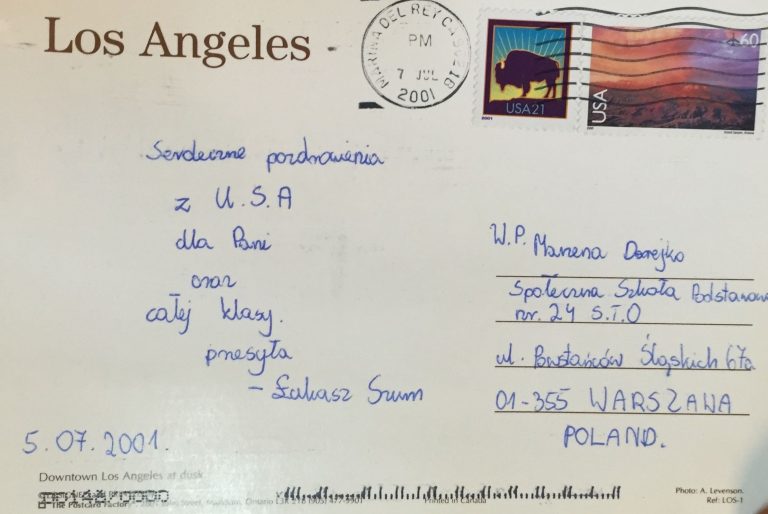 Los Angeles
MARINA DEL REY CA 90218
PM
7 JUL
2001
USA21
2001
60
USA
Serdeczne pozdrowienia
z U.S.A
dla Pani
oraz
całej klasy.
przesyła
- Łukasz Szum
5.07.2001.
W.P. Marzena Derejko
Społeczna Szkoła Podstawowa
nr. 24 S.T.O
ul. Powstańców Śląskich 67a
01-355 WARSZAWA
POLAND.
Downtown Los Angeles at dusk
The Postcard Factory
Printed in Canada
Photo: A. Levenson.
Ref: LOS-1